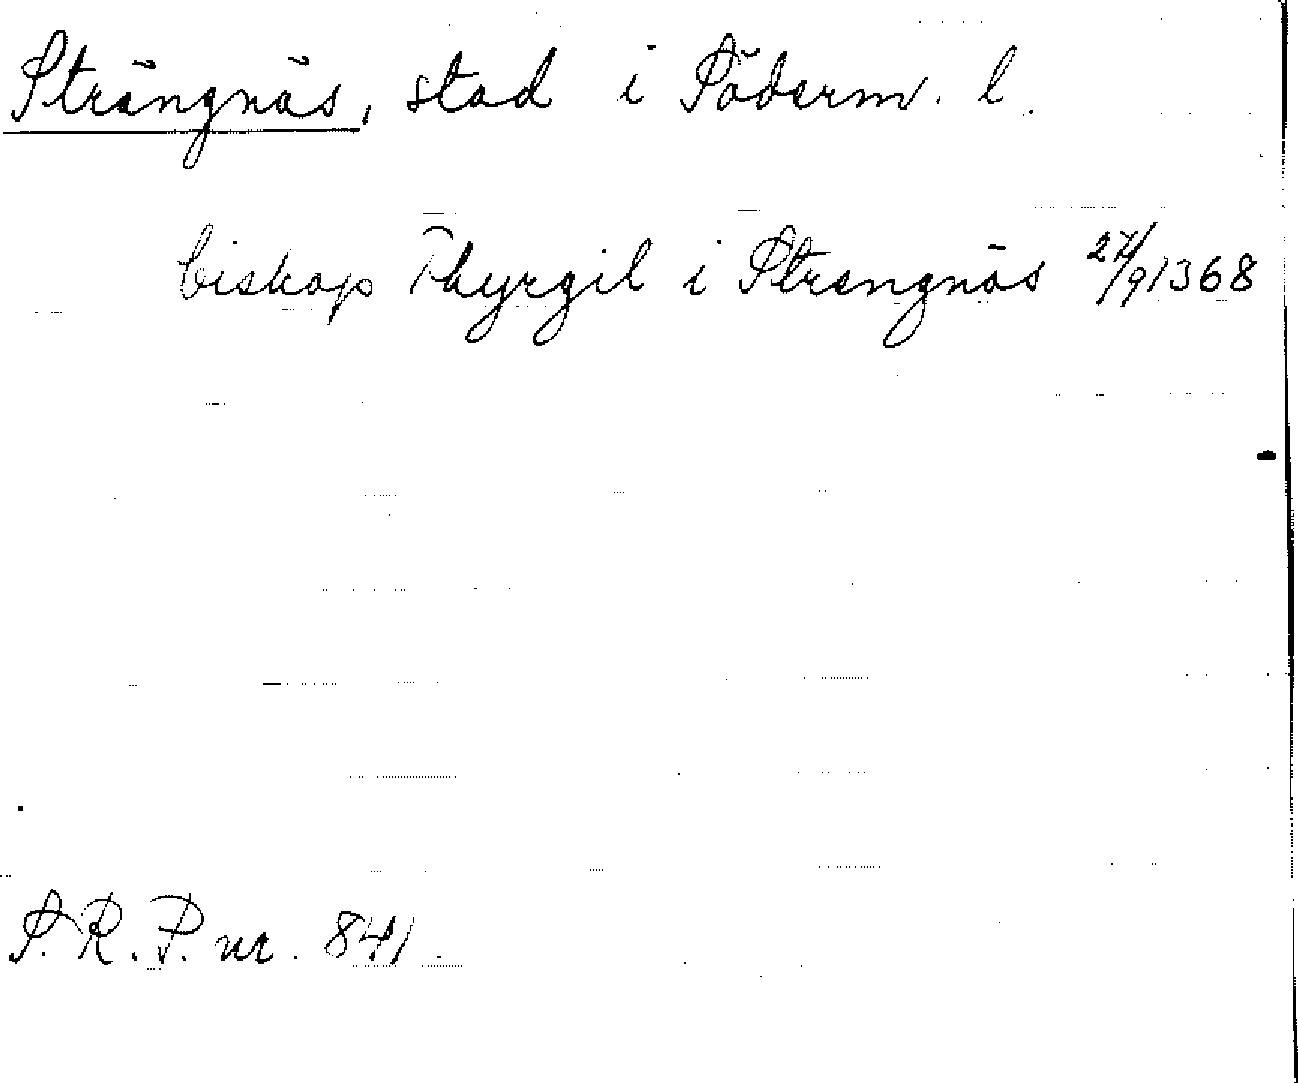 Strängnäs, stad i Söderm. l.
biskop Thyrgil i Strengnäs 27/9 1368
S. R. P. nr. 841.